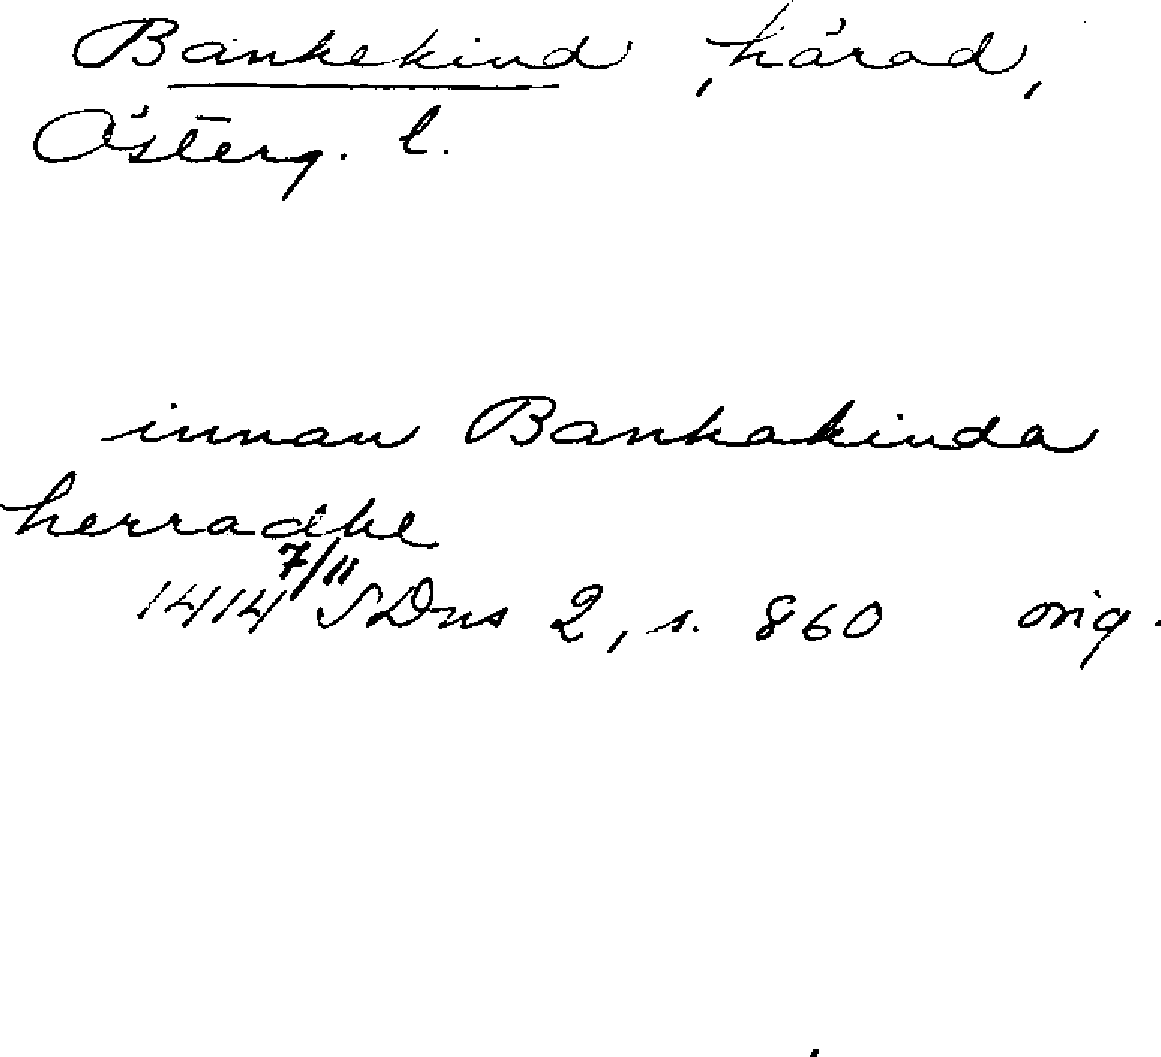 Bankekind, härad,
Österg. l.
innan Bankakinda
herradhe
1414 7/11 SDns 2, s. 860 orig.